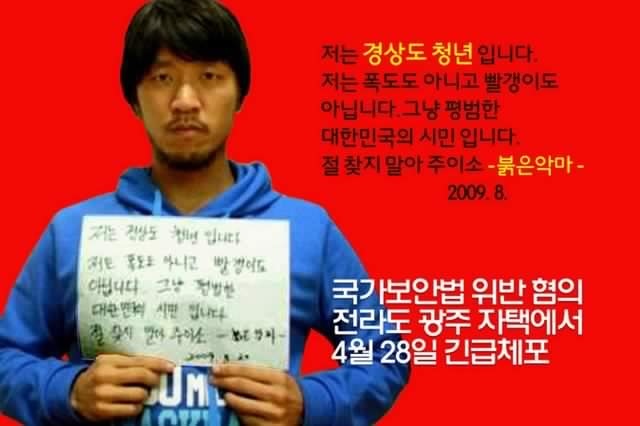 저는 경상도 청년 입니다.
저는 폭도도 아니고 빨갱이도
아닙니다.그냥 평범한
대한민국의 시민 입니다.
절 찾지 말아 주이소 -붉은악마-
2009. 8.
저는 경상도 청년 입니다
저는 폭도도 아니고 빨갱이도
아닙니다. 그냥 평범한
대한민국의 시민 입니다.
절 찾지 말아 주이소 -붉은악마-
2009. 8. 20
국가보안법 위반 혐의
전라도 광주 자택에서
4월 28일 긴급체포